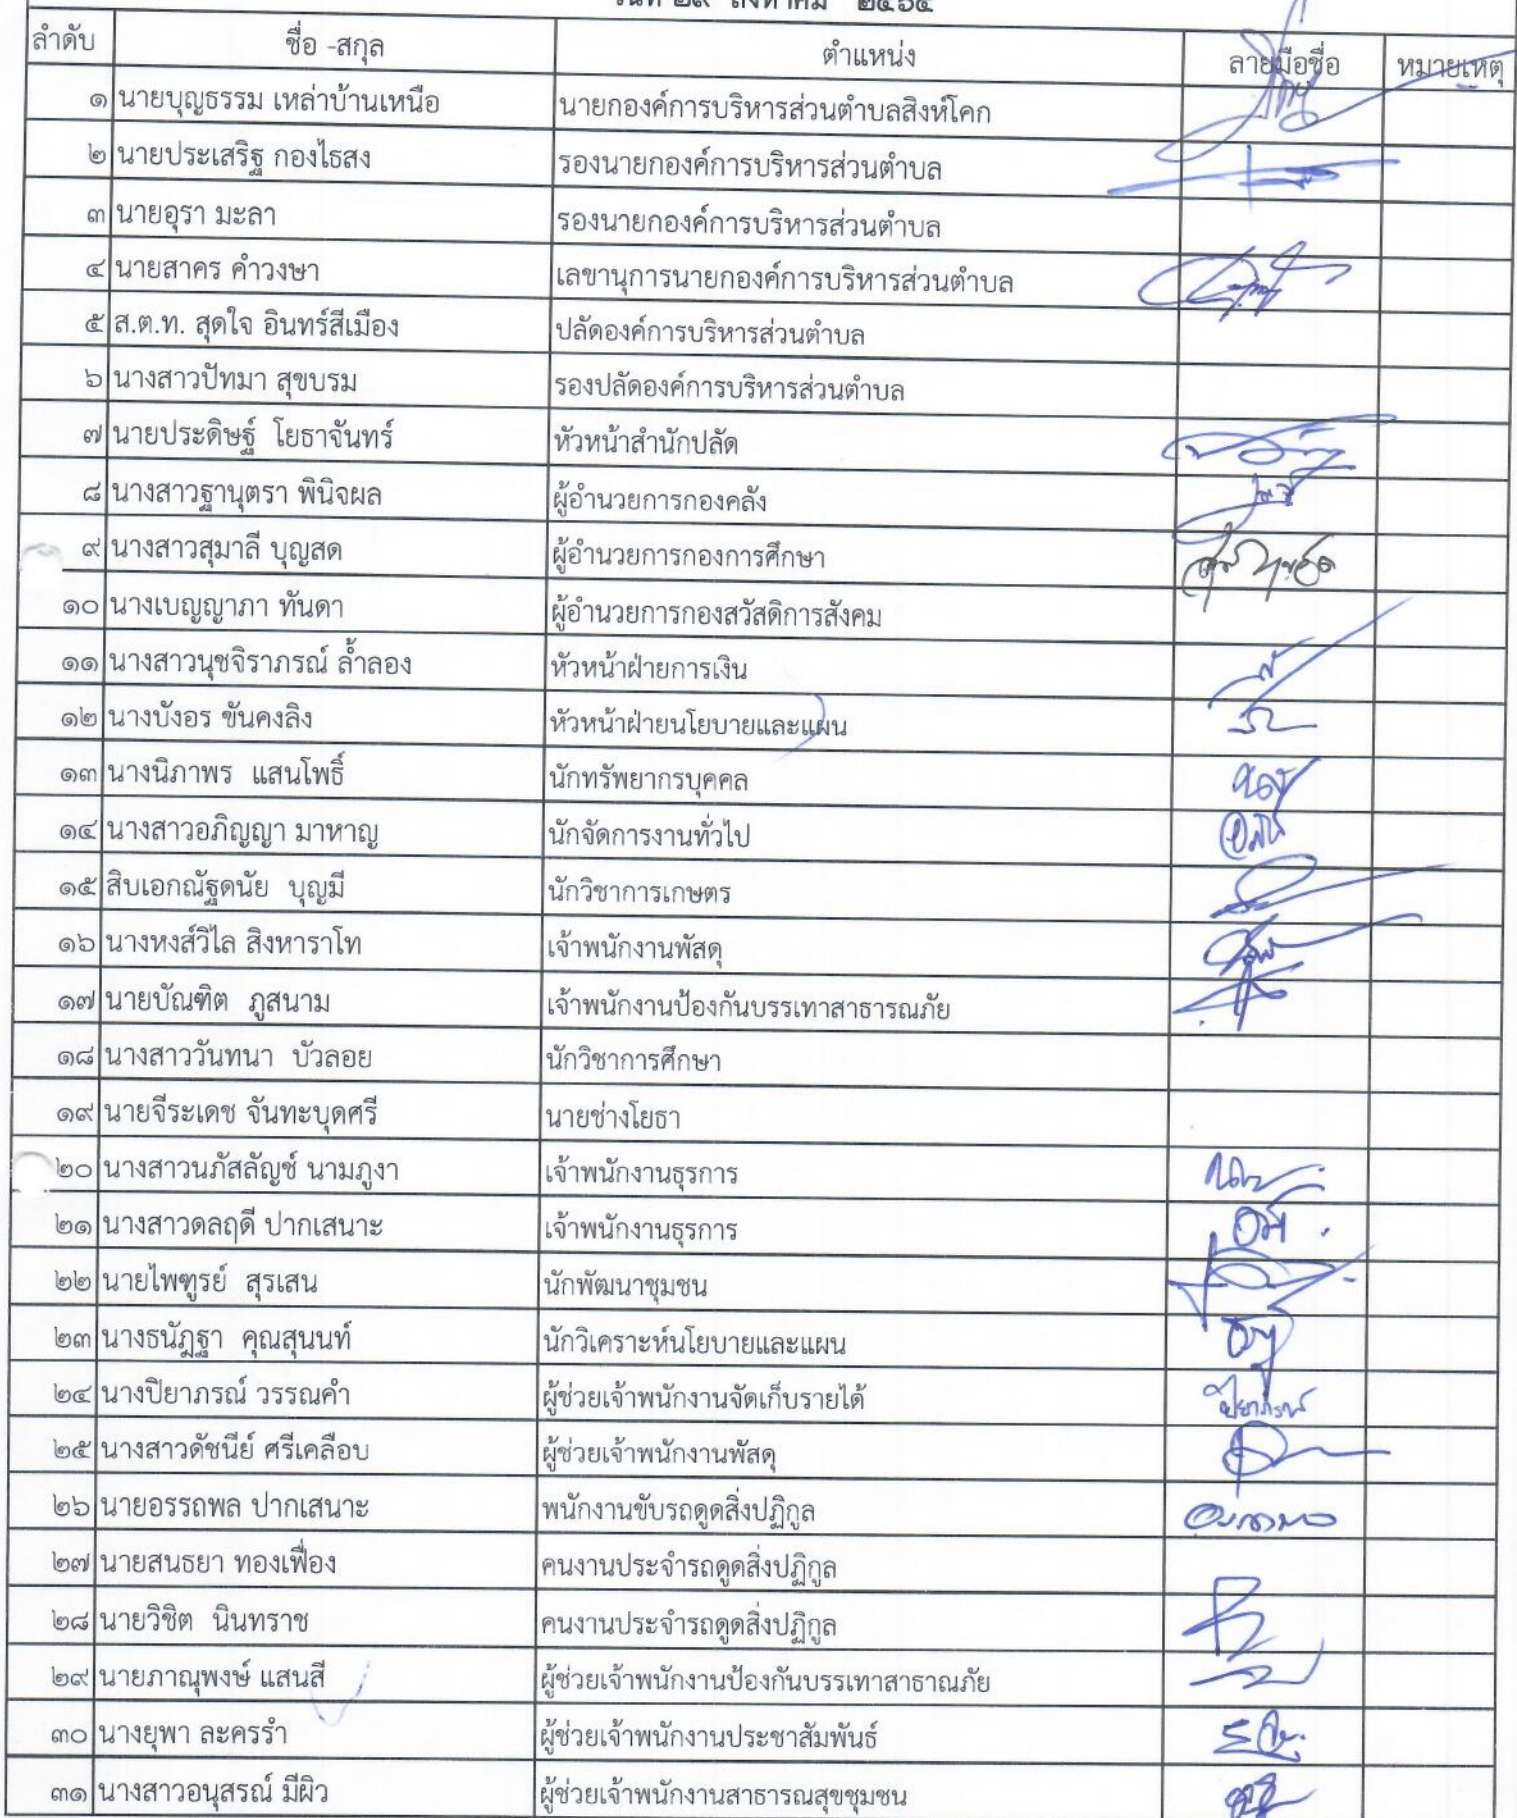 วันที่ ๒๙ สิงหาคม ๒๕๖๔
ลำดับ ชื่อ -สกุล ตำแหน่ง ลายมือชื่อ หมายเหตุ
๑ นายบุญธรรม เหล่าบ้านเหนือ นายกองค์การบริหารส่วนตำบลสิงห์โคก
๒ นายประเสริฐ กองไธสง รองนายกองค์การบริหารส่วนตำบล
๓ นายอุรา มะลา รองนายกองค์การบริหารส่วนตำบล
๔ นายสาคร คำวงษา เลขานุการนายกองค์การบริหารส่วนตำบล
๕ ส.ต.ท. สุดใจ อินทร์สีเมือง ปลัดองค์การบริหารส่วนตำบล
๖ นางสาวปัทมา สุขบรม รองปลัดองค์การบริหารส่วนตำบล
๗ นายประดิษฐ์ โยธาจันทร์ หัวหน้าสำนักปลัด
๘ นางสาวฐานุตรา พินิจผล ผู้อำนวยการกองคลัง
๙ นางสาวสุมาลี บุญสด ผู้อำนวยการกองการศึกษา
๑๐ นางเบญญาภา ทันดา ผู้อำนวยการกองสวัสดิการสังคม
๑๑ นางสาวนุชจิราภรณ์ ล้ำลอง หัวหน้าฝ่ายการเงิน
๑๒ นางบังอร ขันคงลิง หัวหน้าฝ่ายนโยบายและแผน
๑๓ นางนิภาพร แสนโพธิ์ นักทรัพยากรบุคคล
๑๔ นางสาวอภิญญา มาหาญ นักจัดการงานทั่วไป
๑๕ สิบเอกณัฐดนัย บุญมี นักวิชาการเกษตร
๑๖ นางหงส์วิไล สิงหาราโท เจ้าพนักงานพัสดุ
๑๗ นายบัณฑิต ภูสนาม เจ้าพนักงานป้องกันบรรเทาสาธารณภัย
๑๘ นางสาววันทนา บัวลอย นักวิชาการศึกษา
๑๙ นายจีระเดช จันทะบุดศรี นายช่างโยธา
๒๐ นางสาวนภัสลัญช์ นามภูงา เจ้าพนักงานธุรการ
๒๑ นางสาวดลฤดี ปากเสนาะ เจ้าพนักงานธุรการ
๒๒ นายไพฑูรย์ สุรเสน นักพัฒนาชุมชน
๒๓ นางธนัฎฐา คุณสุนนท์ นักวิเคราะห์นโยบายและแผน
๒๔ นางปิยาภรณ์ วรรณคำ ผู้ช่วยเจ้าพนักงานจัดเก็บรายได้ ปิยาภรณ์
๒๕ นางสาวดัชนีย์ ศรีเคลือบ ผู้ช่วยเจ้าพนักงานพัสดุ
๒๖ นายอรรถพล ปากเสนาะ พนักงานขับรถดูดสิ่งปฏิกูล
๒๗ นายสนธยา ทองเฟื่อง คนงานประจำรถดูดสิ่งปฏิกูล
๒๘ นายวิชิต นินทราช คนงานประจำรถดูดสิ่งปฏิกูล
๒๙ นายภาณุพงษ์ แสนสี ผู้ช่วยเจ้าพนักงานป้องกันบรรเทาสาธาณภัย
๓๐ นางยุพา ละครรำ ผู้ช่วยเจ้าพนักงานประชาสัมพันธ์
๓๑ นางสาวอนุสรณ์ มีผิว ผู้ช่วยเจ้าพนักงานสาธารณสุขชุมชน